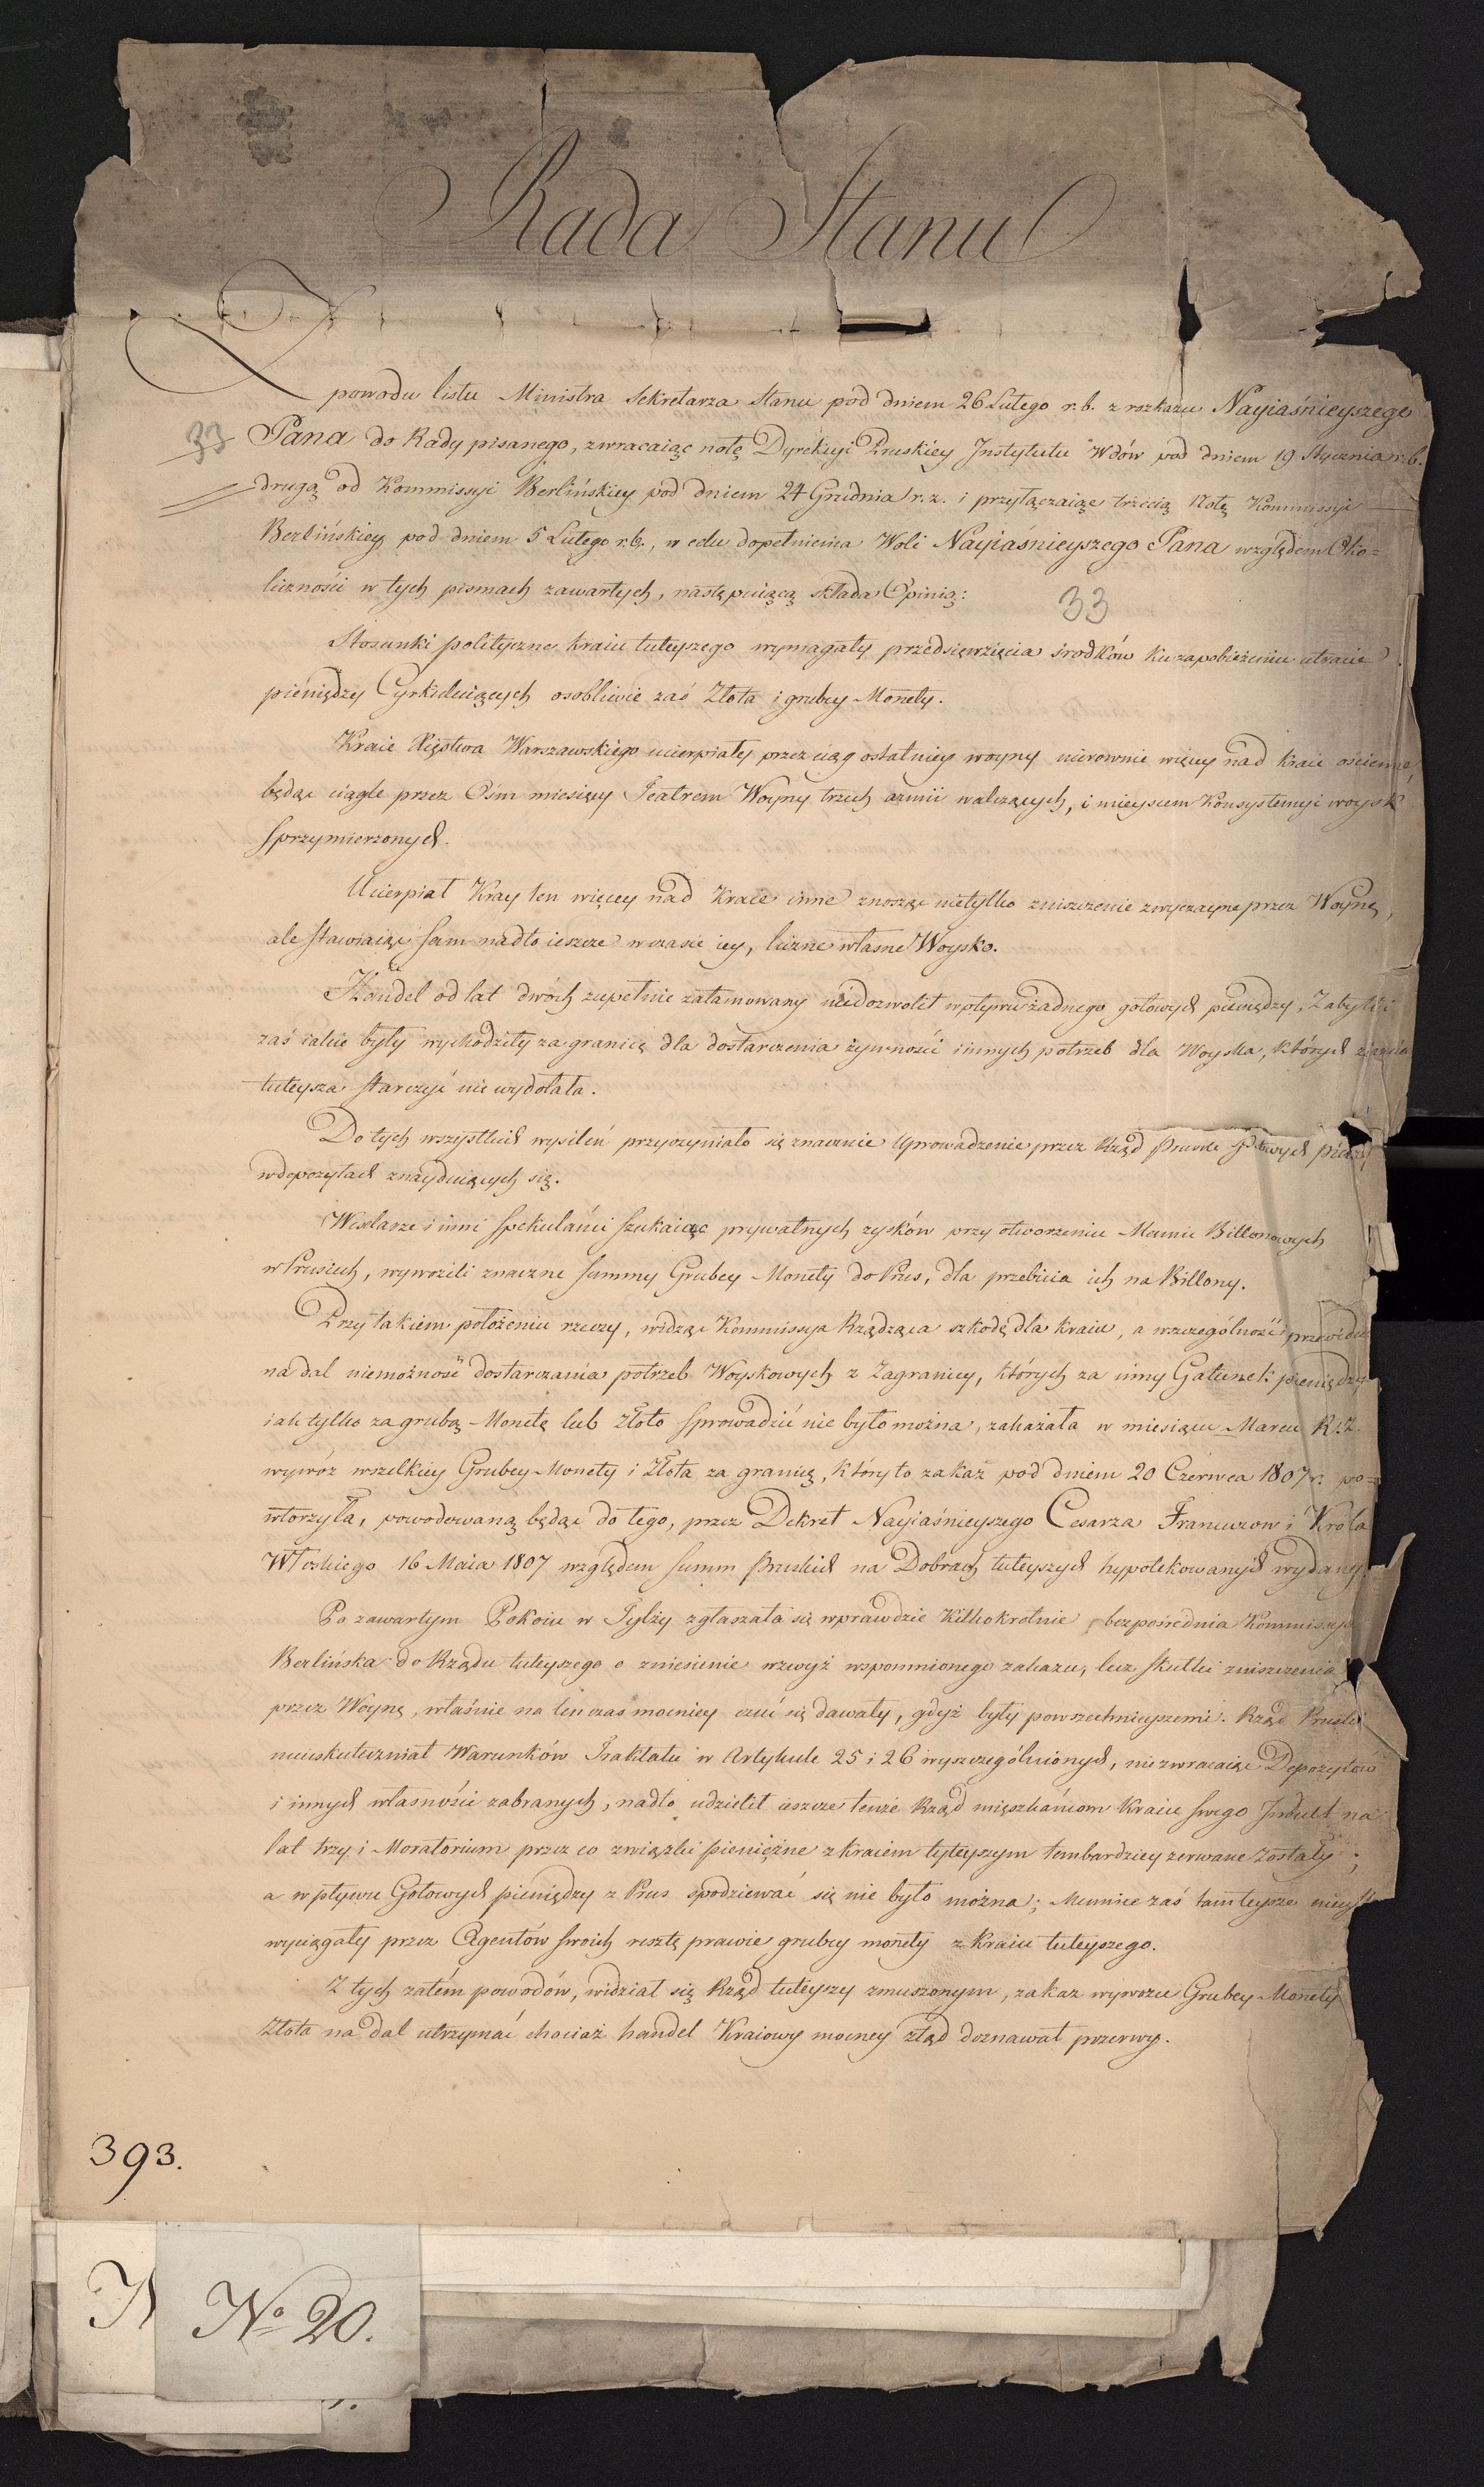 Rada Stanu
Z powodu listu Ministra Sekretarza Stanu pod dniem 26 Lutego r.b. z rozkazu Nayiaśnieyszego
33 Pana do Rady pisanego, zwracaiąc notę Dyrekcyi Pruskiéy Instytutu Wdów pod dniem 19 Stycznia r.b.
drugą od Kommissyi Berlińskiey pod dniem 24 Grudnia r.z. i przyłączaiąc trzecią Notę Kommissyi
Berlińskiey pod dniem 5 Lutego r.b., w celu dopełnienia Woli Nayiaśnieyszego Pana względem Oko=
liczności w tych pismach zawartych, następuiącą składa Opinią:
33
Stosunki polityczne kraiu tuteyszego wymagały przedsięwzięcia środków ku zapobieżeniu utracie
pieniędzy Cyrkuluiących osobliwie zaś Złota i grubey Monety.
Kraie Xięstwa Warszawskiego ucierpiały przez ciąg ostatniey woyny nierownie więcey nad kraie ościenne,
będąc ciągle przez Ośm miesięcy Teatrem Woyny trzech armii walczących, i mieyscem Konsystencyi woysk
sprzymierzonych.
Ucierpiał Kray ten więcey nad Kraie inne znosząc nietylko zniszczenie zwyczayne przez Woynę,
ale stawiaiąc sam nadto ieszcze w czasie iey, liczne własne Woysko.
Handel od lat dwóch zupełnie zatamowany niedozwolił wpływu żadnego gotowych pieniędzy, Zabytki
zaś iakie były wychodziły za granicę dla dostarczenia żywności i innych potrzeb dla Woyska, których ziemia
tuteysza starczyć nie wydołała.
Do tych wszystkich wysileń przyczyniało się znacznie Uprowadzenie przez Rząd Pruski gotowych pie[n]dzy
w depozytach znayduiących się.
Wexlarze i inni spekulańci szukaiąc prywatnych zysków przy otworzeniu Mennic Billonowych
w Prusiech, wywozili znaczne summy Grubey Monety do Prus, dla przebicia ich na Billony.
Przy takiem położeniu rzeczy, widząc Kommissya Rządząca szkodę dla kraiu, a wszczególności przewidu
na dal niemożność dostarczania potrzeb Woyskowych z Zagranicy, których za inny Gatunek pieniędzy
iak tylko za grubą Monetę lub złoto sprowadzić nie było można, zakazała w miesiącu Marcu R.z.
wywóz wszelkiey Grubey Monety i Złota za granicę, który to zakaz pod dniem 20 Czerwca 1807 r. po=
wtorzyła, powodowaną będąc do tego, przez Dekret Nayiaśnieyszego Cesarza Francuzow i Króla
Włoskiego 16 Maia 1807 względem summ Pruskich na Dobrach tuteyszych hypotekowanych wydany
Po zawartym Pokoiu w Tylży zgłaszała się wprawdzie Kilkokrotnie bezpośrednia Kommissya
Berlińska do Rządu tuteyszego o zniesienie wzwyż wspomnionego zakazu, lecz skutki zniszczenia
przez Woynę, właśnie na ten czas mocniey czuć się dawały, gdyż były powszechnieyszemi. Rząd Pruski
nieuskuteczniał Warunków Traktatu w Artykule 25 i 26 wyszczególnionych, niezwracaiąc Depozytow
i innych własności zabranych, nadto udzielił ieszcze tenże Rząd mięszkańcom Kraiu swego Indult na
lat trzy i Moratorium przez co związki pieniężne z kraiem tyteyszym tembardziey zerwane zostały;
a wpływu Gotowych pieniędzy z Prus spodziewać się nie było można; Mennice zaś tamteysze
wyciągały przez Agentów swoich resztę prawie grubey monety z Kraiu tuteyszego.
Z tych zatém powodów, widział się Rząd tuteyszy zmuszonym, zakaz wywozu Grubey Monety
Złota na dal utrzymać chociaż handel Kraiowy mocney ztąd doznawał przerwy.
393.
N
No 20.